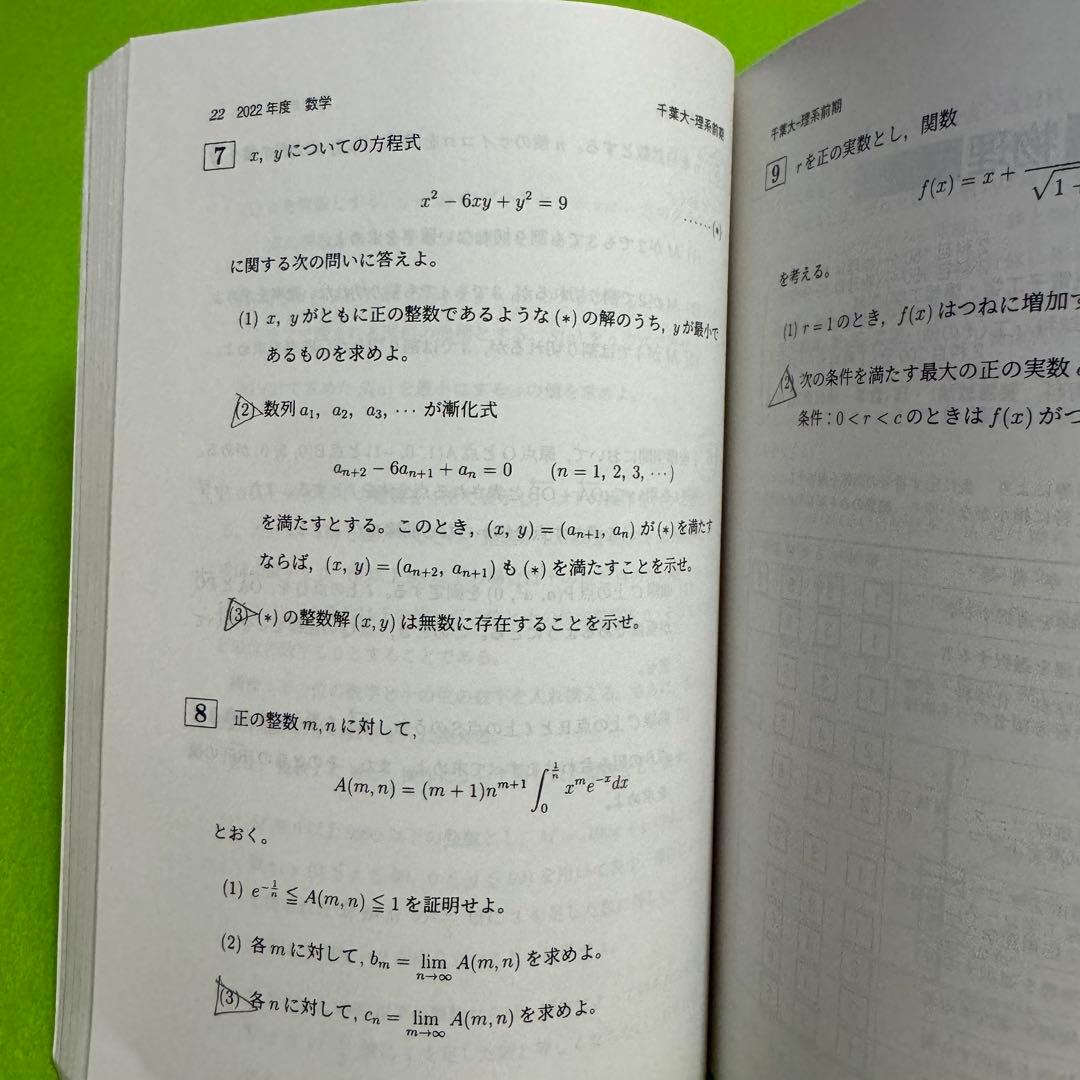 22 2022年度 数学
千葉大-理系前期
7 x, yについての方程式
x² − 6xy + y² = 9 ……(*)
に関する次の問いに答えよ。
(1) x, yがともに正の整数であるような(*)の解のうち, yが最小で
あるものを求めよ。
(2) 数列 a₁, a₂, a₃, … が漸化式
aₙ₊₂ − 6aₙ₊₁ + aₙ = 0 (n = 1, 2, 3, …)
を満たすとする。このとき, (x, y) = (aₙ₊₁, aₙ) が(*)を満たす
ならば, (x, y) = (aₙ₊₂, aₙ₊₁) も(*)を満たすことを示せ。
(3) (*)の整数解(x, y)は無数に存在することを示せ。
8 正の整数m, nに対して,
A(m, n) = (m + 1)n^{m+1} ∫_0^{1/n} x^m e^{−x} dx
とおく。
(1) e^{−1/n} ≦ A(m, n) ≦ 1 を証明せよ。
(2) 各mに対して, b_m = lim_{n→∞} A(m, n) を求めよ。
(3) 各nに対して, c_n = lim_{m→∞} A(m, n) を求めよ。
千葉大-理系前期
9 rを正の実数とし, 関数
f(x) = x + √1+
を考える。
(1) r = 1のとき, f(x)はつねに増加す
(2) 次の条件を満たす最大の正の実数
条件：0 < r < cのときは f(x) が